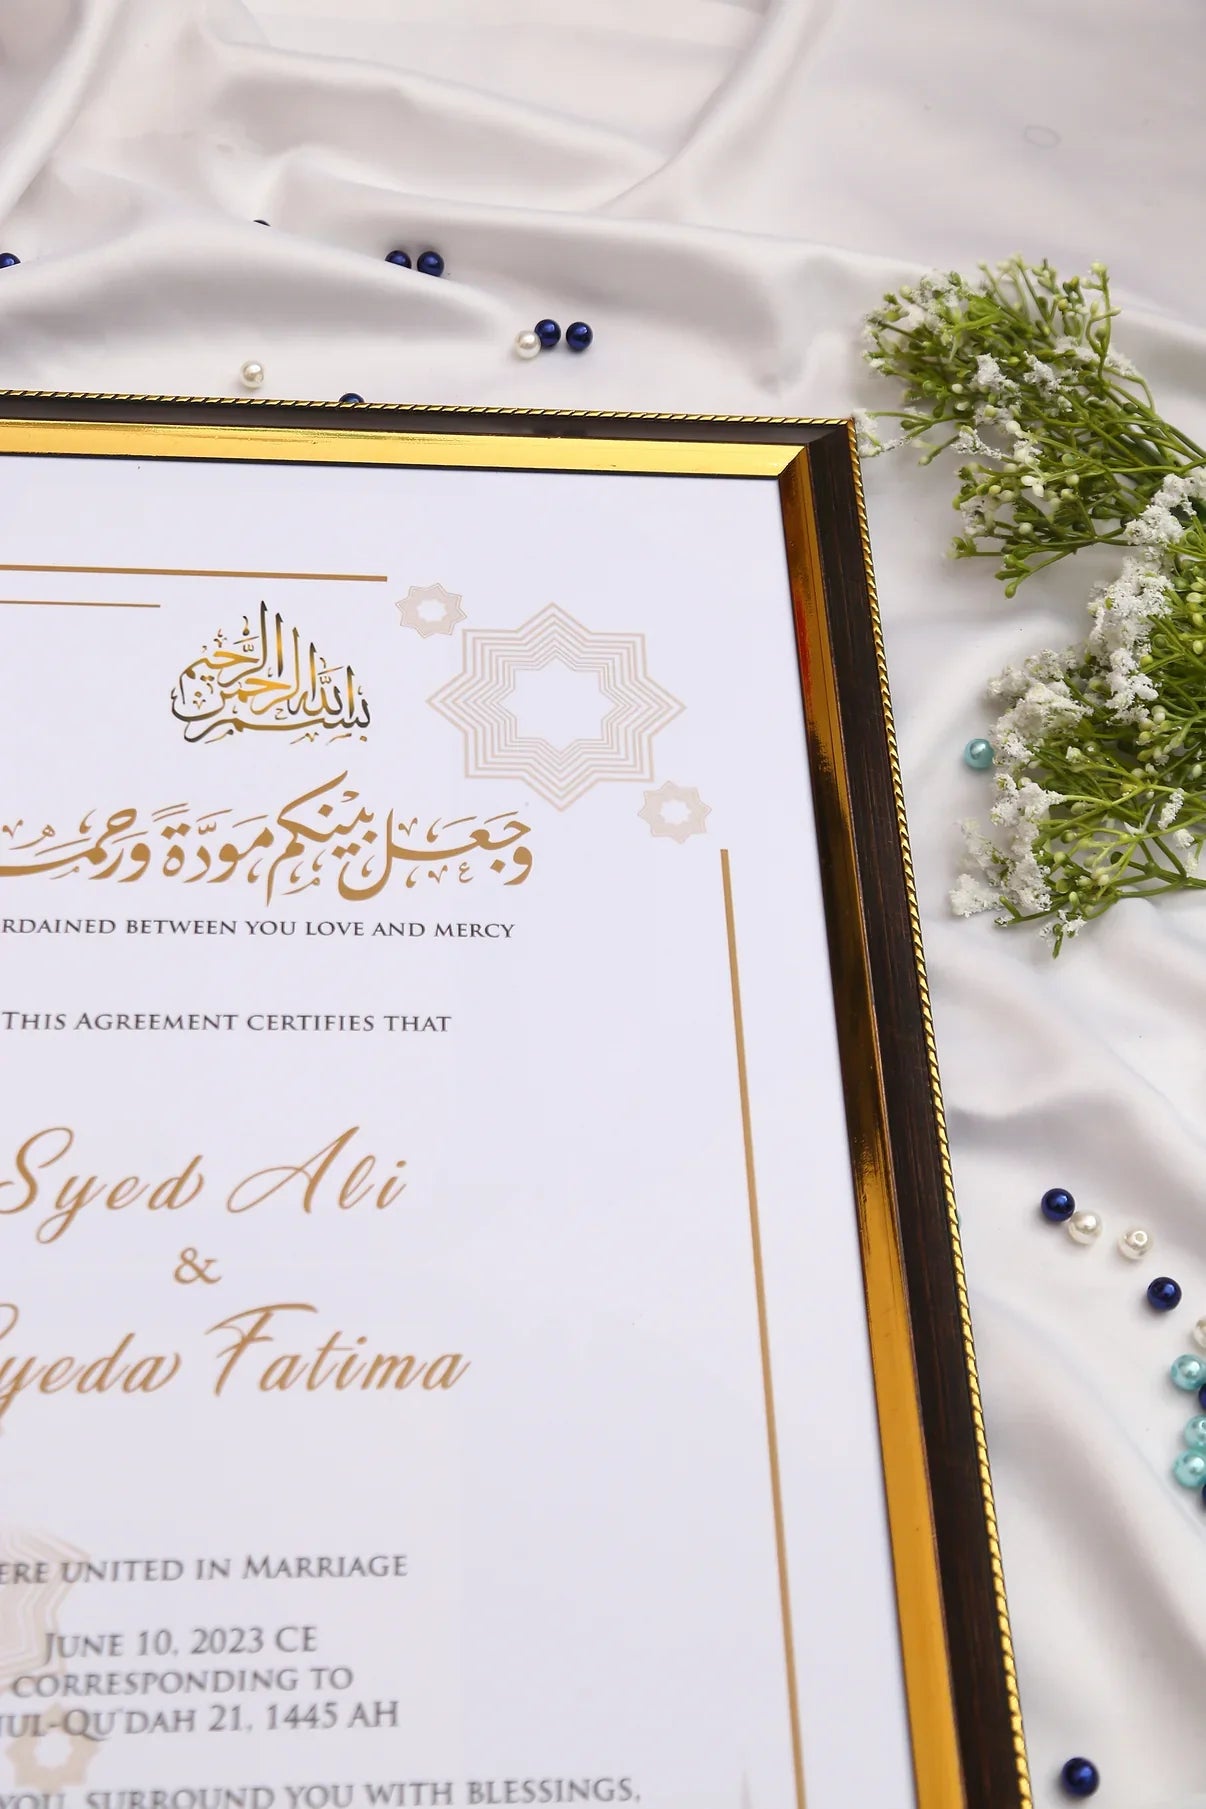 بسم الله الرحمن الرحيم
وَجَعَلَ بَيْنَكُم مَّوَدَّةً وَرَحْمَـ
RDAINED BETWEEN YOU LOVE AND MERCY
THIS AGREEMENT CERTIFIES THAT
Syed Ali
&
yeda Fatima
ERE UNITED IN MARRIAGE
JUNE 10, 2023 CE
CORRESPONDING TO
UL-QU'DAH 21, 1445 AH
YOU, SURROUND YOU WITH BLESSINGS,